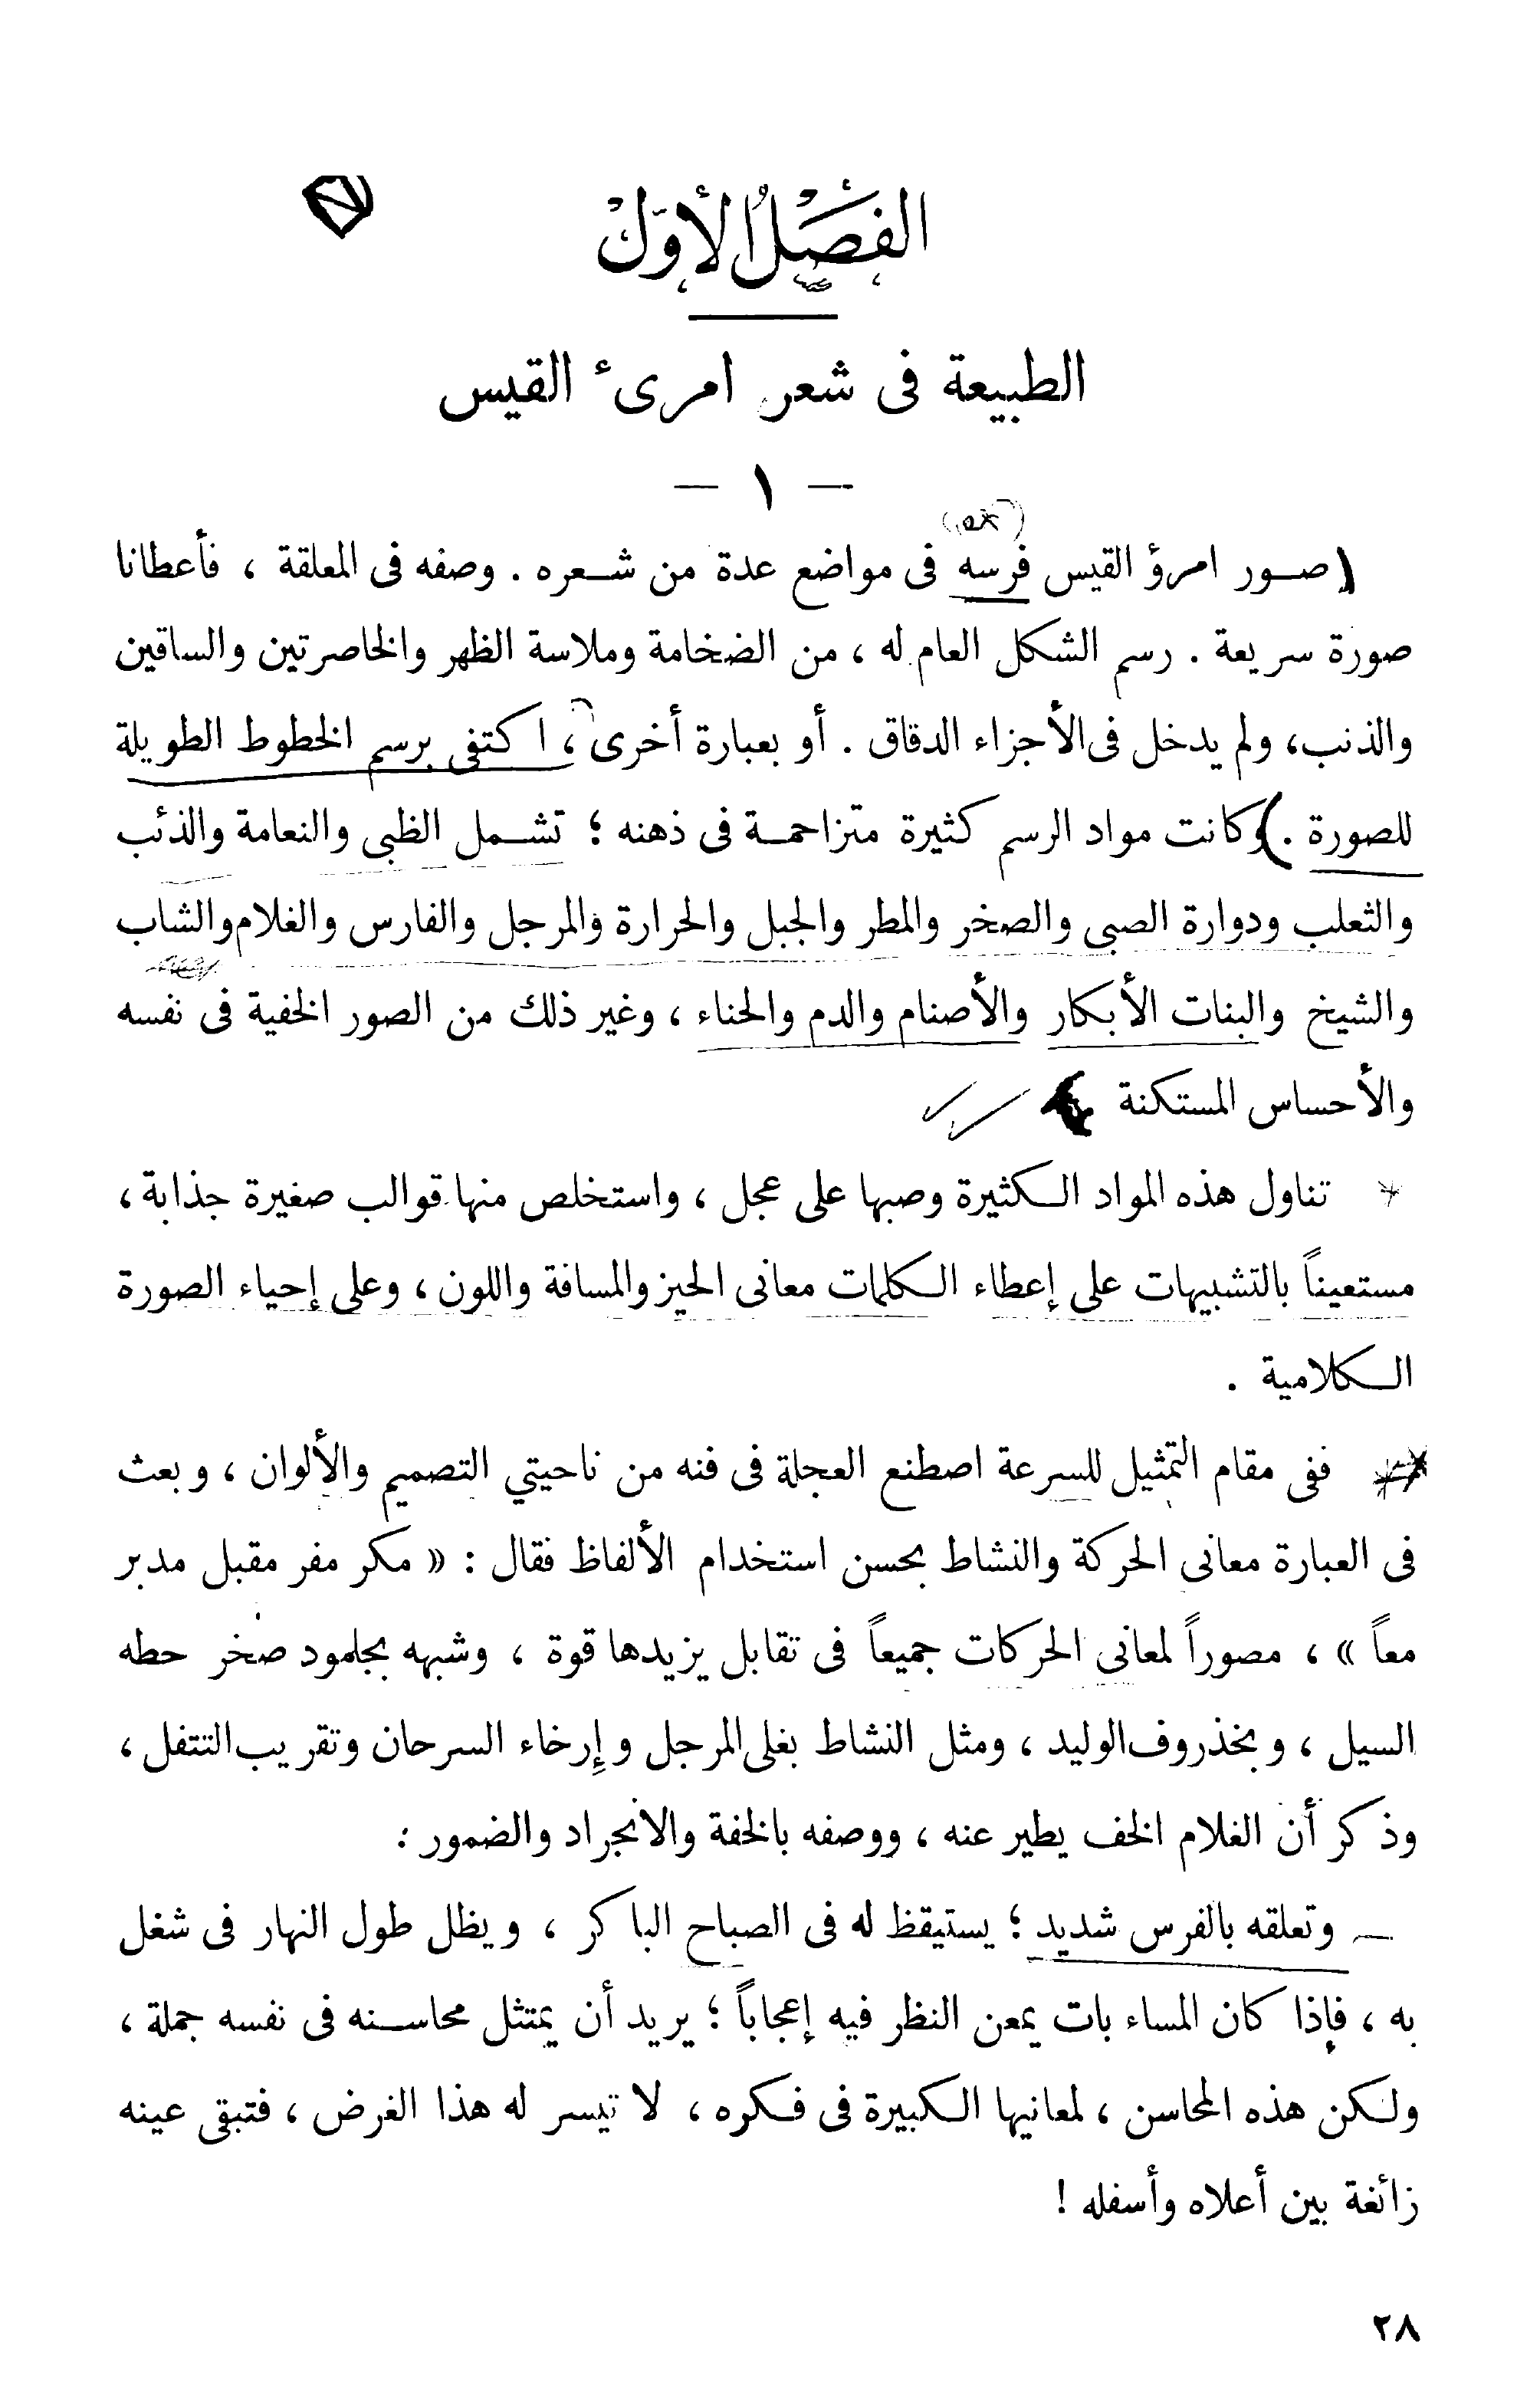 الفَصْلُ الأوّلْ
الطبيعة فى شعر امرىء القيس
— ١ —
صور امرؤ القيس فرسه فى مواضع عدة من شعره . وصفه فى المعلقة ، فأعطانا
صورة سريعة . رسم الشكل العام له ، من الضخامة وملاسة الظهر والخاصرتين والساقين
والذنب، ولم يدخل فى الأجزاء الدقاق . أو بعبارة أخرى ، اكتفى برسم الخطوط الطويلة
للصورة . وكانت مواد الرسم كثيرة متزاحمة فى ذهنه ؛ تشمل الظبى والنعامة والذئب
والثعلب ودوارة الصبى والصخر والمطر والجبل والحرارة والمرجل والفارس والغلام والشاب
والشيخ والبنات الأبكار والأصنام والدم والحناء ، وغير ذلك من الصور الخفية فى نفسه
والأحساس المستكنة
تناول هذه المواد الكثيرة وصبها على عجل ، واستخلص منها قوالب صغيرة جذابة ،
مستعيناً بالتشبيهات على إعطاء الكلمات معانى الحيز والمسافة واللون ، وعلى إحياء الصورة
الكلامية .
ففى مقام التمثيل للسرعة اصطنع العجلة فى فنه من ناحيتي التصميم والألوان ، وبعث
فى العبارة معانى الحركة والنشاط بحسن استخدام الألفاظ فقال : « مكر مفر مقبل مدبر
معاً » ، مصوراً لمعانى الحركات جميعاً فى تقابل يزيدها قوة ، وشبهه بجلمود صخر حطه
السيل ، وبخذروف الوليد ، ومثل النشاط بغلى المرجل وإرخاء السرحان وتقريب التتفل ،
وذكر أن الغلام الخف يطير عنه ، ووصفه بالخفة والانجراد والضمور :
وتعلقه بالفرس شديد ؛ يستيقظ له فى الصباح الباكر ، ويظل طول النهار فى شغل
به ، فإذا كان المساء بات يمعن النظر فيه إعجاباً ؛ يريد أن يمتثل محاسنه فى نفسه جملة ،
ولكن هذه المحاسن ، لمعانيها الكبيرة فى فكره ، لا تيسر له هذا الغرض ، فتبقى عينه
زائغة بين أعلاه وأسفله !
٢٨